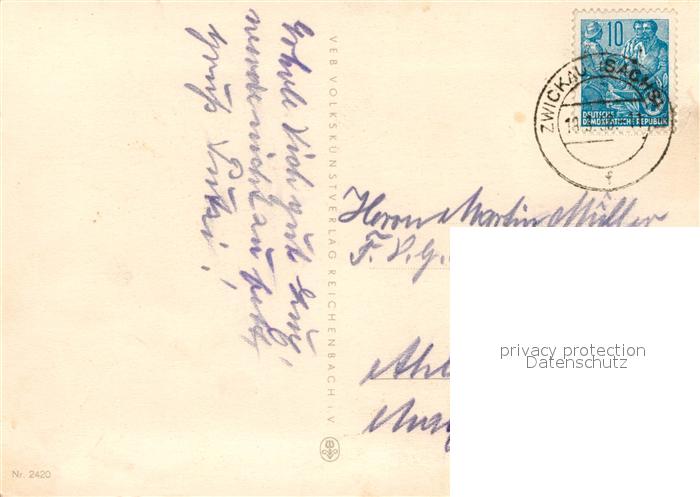 Erhole Dich gut und
werde nicht zu fett,
Gruß
VEB VOLKSKUNSTVERLAG REICHENBACH i. V.
10
DEUTSCHE
DEMOKRATISCHE REPUBLIK
ZWICKAU (SACHS)
f
Herrn Martin Müller
F. D. G.
privacy protection
Datenschutz
Nr. 2420